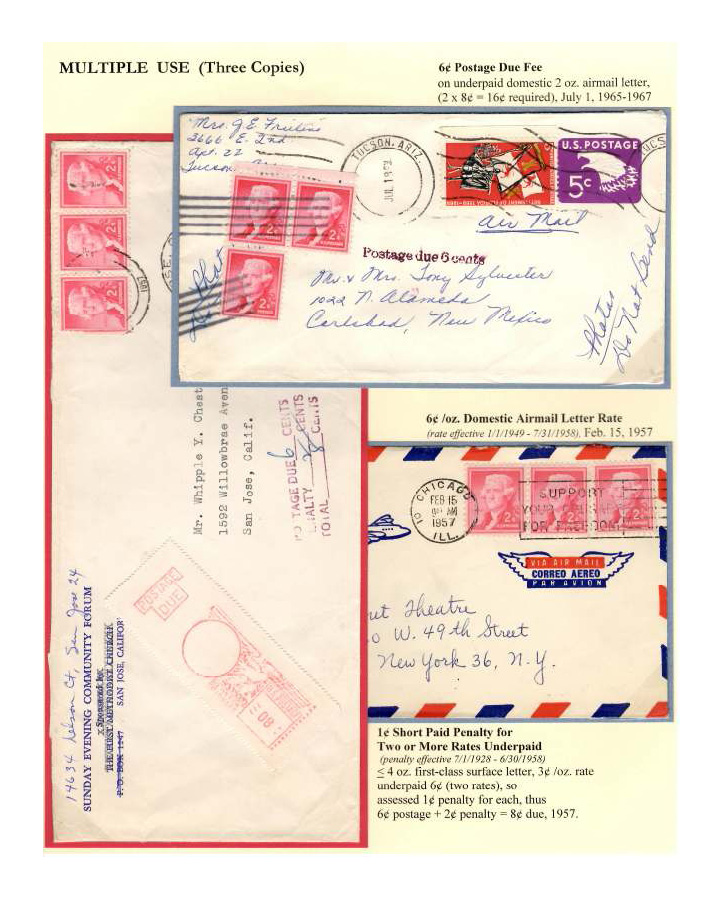 MULTIPLE USE (Three Copies)
6¢ Postage Due Fee
on underpaid domestic 2 oz. airmail letter,
(2 x 8¢ = 16¢ required), July 1, 1965-1967
Mrs. J. E.
2666 E. 2nd
Apt. 22
Tucson
TUCSON, ARIZ
JUL 1
U.S. POSTAGE
5c
Air Mail
Postage due 6 cents
Mr. & Mrs. Tony Sylvester
1022 N. Alameda
Carlsbad, New Mexico
Photos
Do Not Bend
2¢
2¢
2¢
2¢
2¢
2¢
1957
Mr. Whipple Y. Chest
1592 Willowbrae Aven
San Jose, Calif.
POSTAGE DUE 6 CENTS
PENALTY 2 CENTS
TOTAL 8 CENTS
POSTAGE
DUE
08
14634 Nelson Ct, San Jose 24
SUNDAY EVENING COMMUNITY FORUM
Sponsored by
THE FIRST METHODIST CHURCH
P. O. BOX 1247 SAN JOSE, CALIFOR
6¢ /oz. Domestic Airmail Letter Rate
(rate effective 1/1/1949 - 7/31/1958), Feb. 15, 1957
CHICAGO
FEB 15
AM
1957
ILL.
10
2¢
2¢
2¢
SUPPORT
YOUR
FOR FREEDOM
VIA AIR MAIL
CORREO AEREO
PAR AVION
ut Theatre
o W. 49th Street
New York 36, N.Y.
1¢ Short Paid Penalty for
Two or More Rates Underpaid
(penalty effective 7/1/1928 - 6/30/1958)
≤ 4 oz. first-class surface letter, 3¢ /oz. rate
underpaid 6¢ (two rates), so
assessed 1¢ penalty for each, thus
6¢ postage + 2¢ penalty = 8¢ due, 1957.